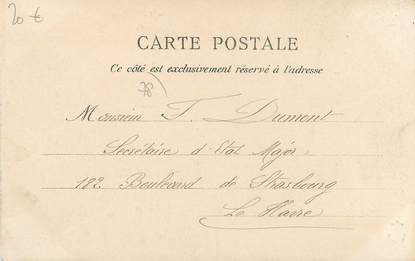 20 €
CARTE POSTALE
Ce côté est exclusivement réservé à l'adresse
78
Monsieur F. Dumont
Secrétaire d'Etat Major
182 Boulevard de Strasbourg
Le Havre